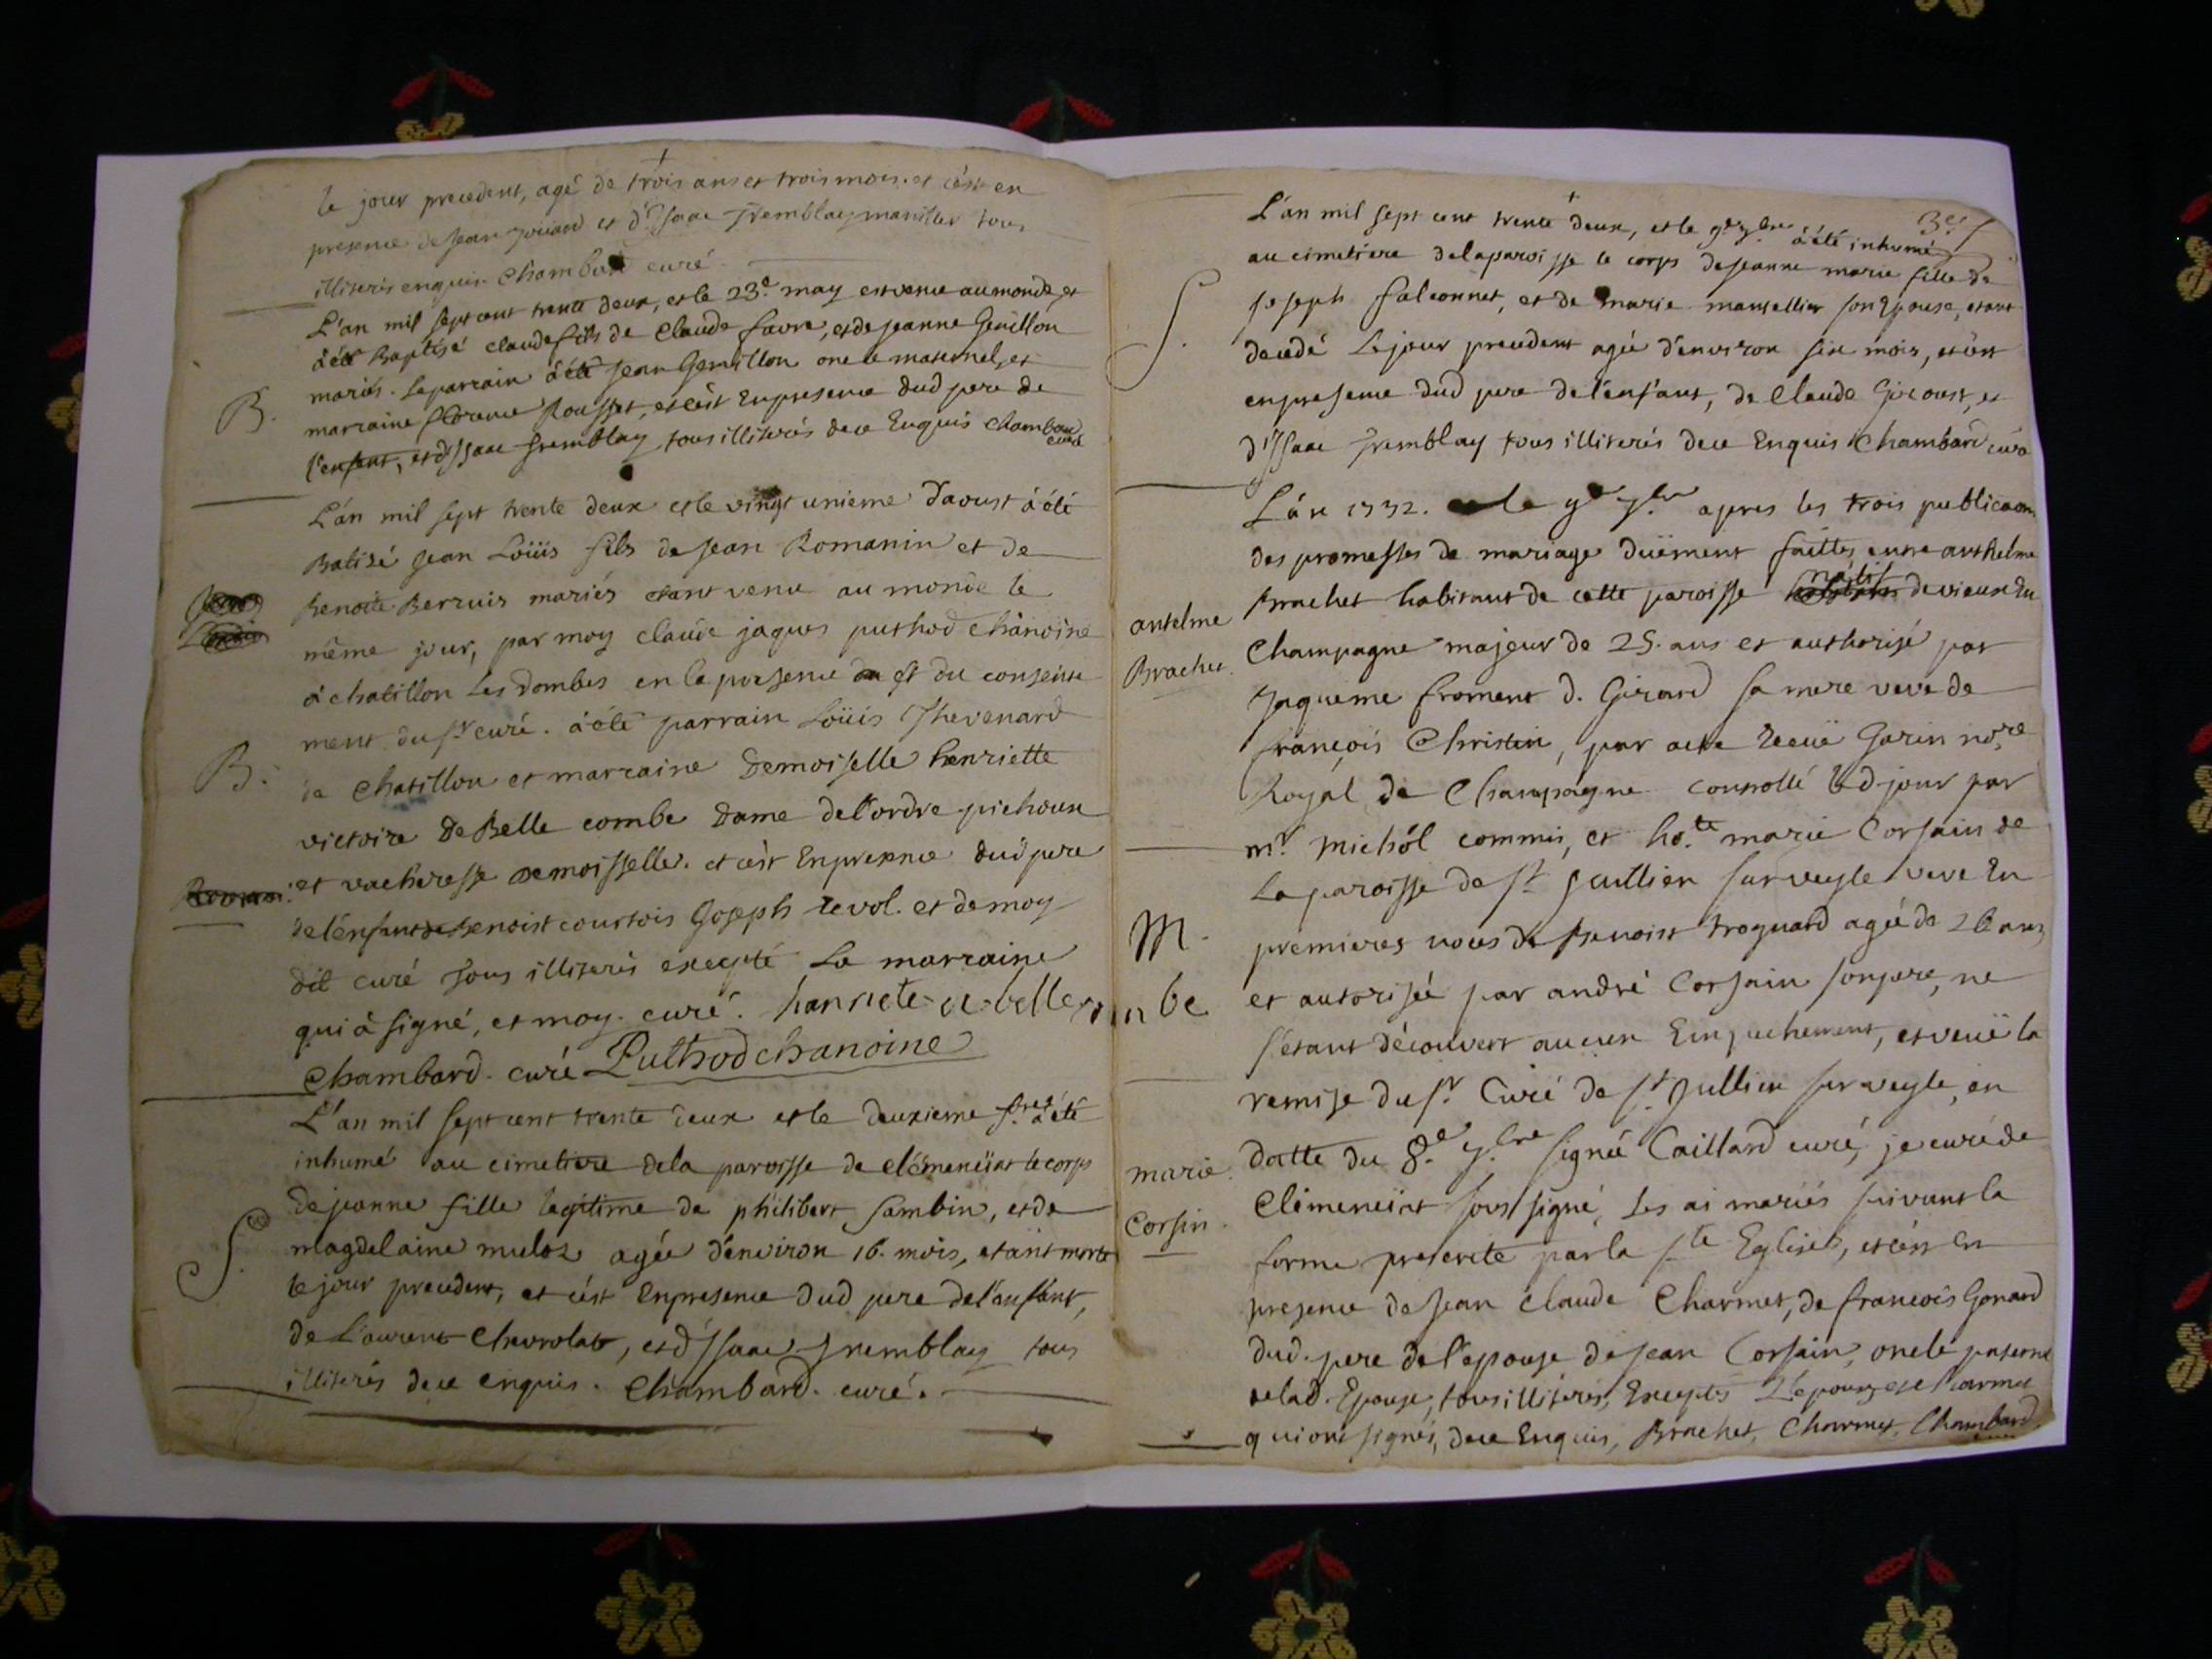 le jour precedent, agé de trois ans et trois mois. et c'est en
presence de Jean et d'Isaac Tremblay tous
illiterés enquis. Chambard curé
L'an mil sept cent trente deux, et le 23.e may est venu au monde, et
à été Baptisé claude fils de Claude favre, et de jeanne Genillon
mariés. Le parrain à été Jean Genillon oncle maternel, et
B.
marraine Rousset, et c'est En presence dud pere de
l'enfent, et d'Issaac Tremblay tous illiterés de ce Enquis Chambard
curé
L'an mil sept trente deux et le vingt unieme d'aoust à été
Batisé Jean Loüis fils de Jean Romanin et de
Benoite Berruis mariés etant venu au monde le
même jour, par moy claude jaques puthod chanoine
à chatillon Les dombes en la presence et du consente
ment du sr curé. à été parrain Loüis Thevenard
B.
de Chatillon et marraine Demoiselle henriette
victoire De Belle combe Dame de l'ordre
et Demoisselle. et c'est En presence dud pere
de l'enfant de Benoist courtois Goseph revol. et de moy
dit curé tous illiterés excepté La marraine
qui à signé, et moy. curé. hanriete de bellecombe
Chambard. curé Puthod chanoine
L'an mil sept cent trente deux et le deuxieme 7.bre à été
inhumé au cimetiere de la paroisse de clémencïat le corps
de jeanne fille legitime de philibert Sambin, et de
S.
magdelaine mulos agée d'environ 16. mois, etant morte
le jour precedent, et c'est En presence dud pere de l'anfant,
de Laurent Chevrolat, et d'Issaac Tremblay tous
illiterés de ce enquis. Chambard. curé.
3.e
L'an mil sept cent trente deux, et le 9.e 7.bre à été inhumé
au cimetiere de la paroisse le corps de Jeanne marie fille de
S.
Joseph falconnet, et de marie mansellier son Epouse, etant
decedé Le jour precedent agée d'environ six mois, et c'est
en presence dud pere de l'enfant, de Claude Giroust, et
d'Issaac Tremblay tous illiterés de ce Enquis Chambard curé
L'an 1732. le 9.e 7.bre apres les trois publicaons
des promesses de mariage duëment faittes entre anthelme
Brachet habitant de cette paroisse natif de vieux En
antelme
Brachet.
Champagne majeur de 25. ans et authorisé par
Jaqueme froment d. Girard sa mere veve de
françois Christin, par acte receü Garin no.re
Royal de Champagne controllé led. jour par
mr. Michôl commis, et ho.te marie Corsain de
La paroisse de St Jullien sur veyle veve En
M.
premieres noces de Benoist troguard agée de 26 ans
et autorisée par andré Corsain son pere, ne
s'etant découvert aucun Empechement, et veüe la
remise du sr. Curé de St Jullien sur veyle, en
datte du 8.e 7.bre signée Caillard curé, je curé de
marie
Corsin.
Clémencïat sous signé, les ai mariés suivant la
forme prescrite par la Ste Eglise, et c'est En
presence de Jean claude Charmet, de françois Gonard
dud. pere de l'epouse de Jean Corsain, oncle paternel
de lad. Epouse, tous illiterés, Exceptés L'epoux et Charmet
qui ont signés, de ce Enquis, Brachet, Charmet, Chambard.